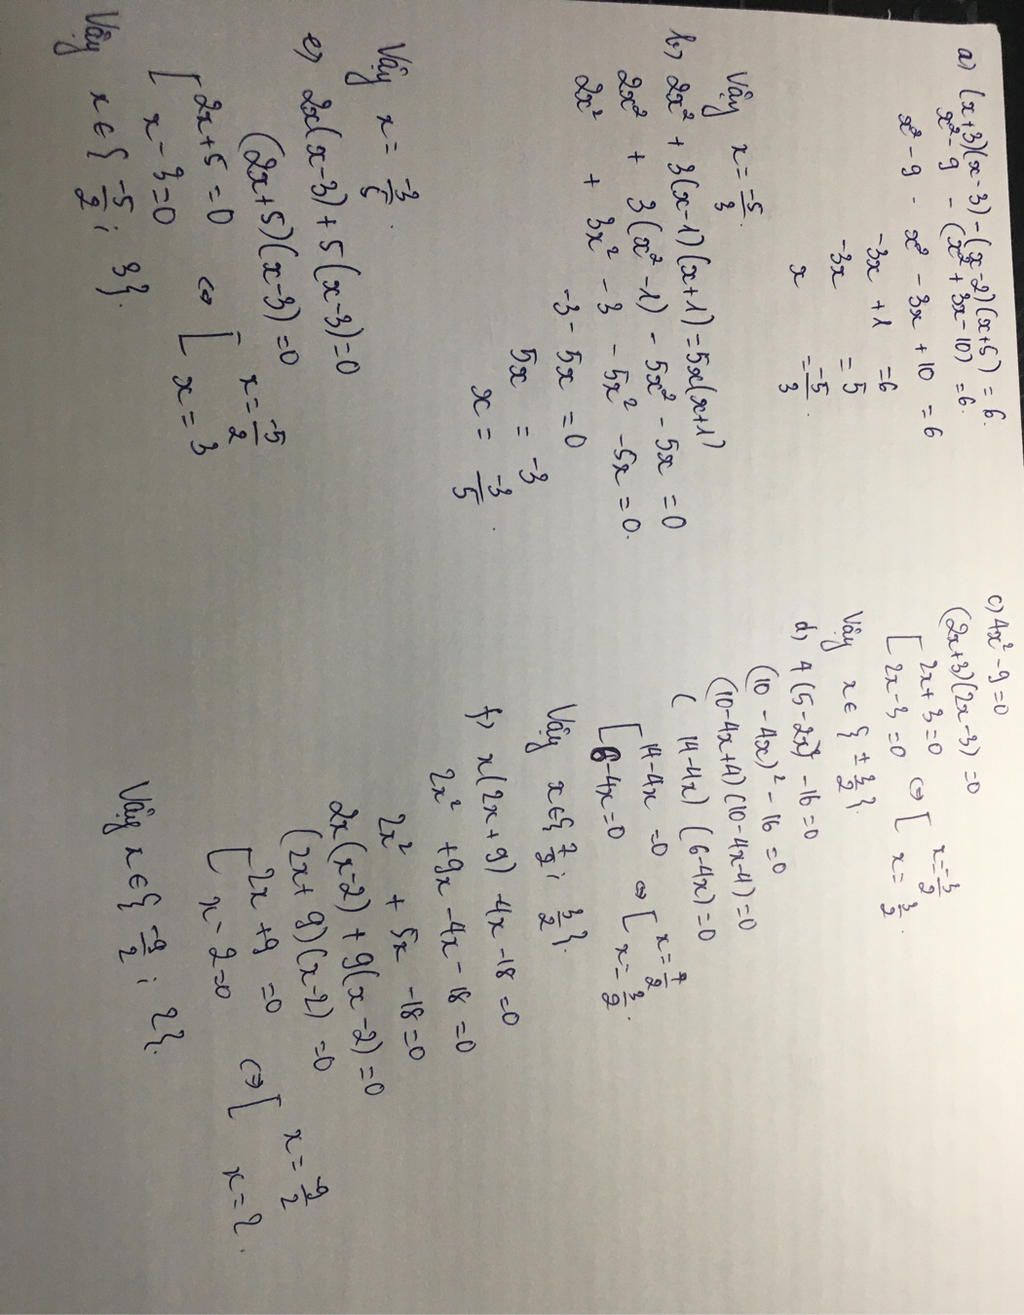 a) (x+3)(x-3) - (x-2)(x+5) = 6.
x² - 9 - (x² + 3x - 10) = 6.
x² - 9 - x² - 3x + 10 = 6
-3x + 1 = 6
-3x = 5
x = -5/3.
Vậy x = -5/3
b) 2x² + 3(x-1)(x+1) = 5x(x+1)
2x² + 3(x² - 1) - 5x² - 5x = 0
2x² + 3x² - 3 - 5x² - 5x = 0.
-3 - 5x = 0
5x = -3
x = -3/5.
Vậy x = -3/5.
e) 2x(x-3) + 5(x-3) = 0
(2x+5)(x-3) = 0
[ 2x+5 = 0 ⇔ [ x = -5/2
x - 3 = 0 x = 3
Vậy x ∈ { -5/2 ; 3}.
c) 4x² - 9 = 0
(2x+3)(2x-3) = 0
[ 2x+3 = 0 ⇔ [ x = -3/2
2x-3 = 0 x = 3/2.
Vậy x ∈ { ± 3/2 }.
d) 4(5-2x)² - 16 = 0
(10 - 4x)² - 16 = 0
(10-4x+4)(10-4x-4) = 0
(14-4x)(6-4x) = 0
[ 14-4x = 0 ⇔ [ x = 7/2
6-4x = 0 x = 3/2.
Vậy x ∈ { 7/2 ; 3/2 }.
f) x(2x+9) - 4x - 18 = 0
2x² + 9x - 4x - 18 = 0
2x² + 5x - 18 = 0
2x(x-2) + 9(x-2) = 0
(2x+9)(x-2) = 0
[ 2x+9 = 0 ⇔ [ x = -9/2
x - 2 = 0 x = 2.
Vậy x ∈ { -9/2 ; 2}.